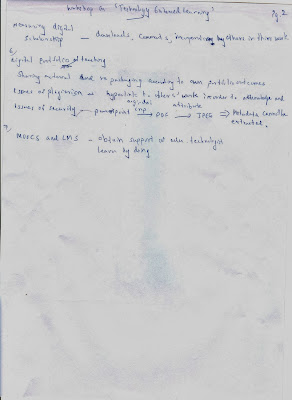 Workshop on 'Technology Enhanced Learning'
Pg. 2
Measuring digital
Scholarship - downloads, comments, incorporating by others in their work
6/
digital portfolios of teaching
Sharing material and re packaging according to own portfolio outcomes
Issues of plagiarism → hyperlink to others' work in order to acknowledge and
attribute
Issues of security → powerpoint → PDF → JPEG → Metadata cannot be
extracted.
7/
MOOCS and LMS - obtain support of technologist
learn by doing